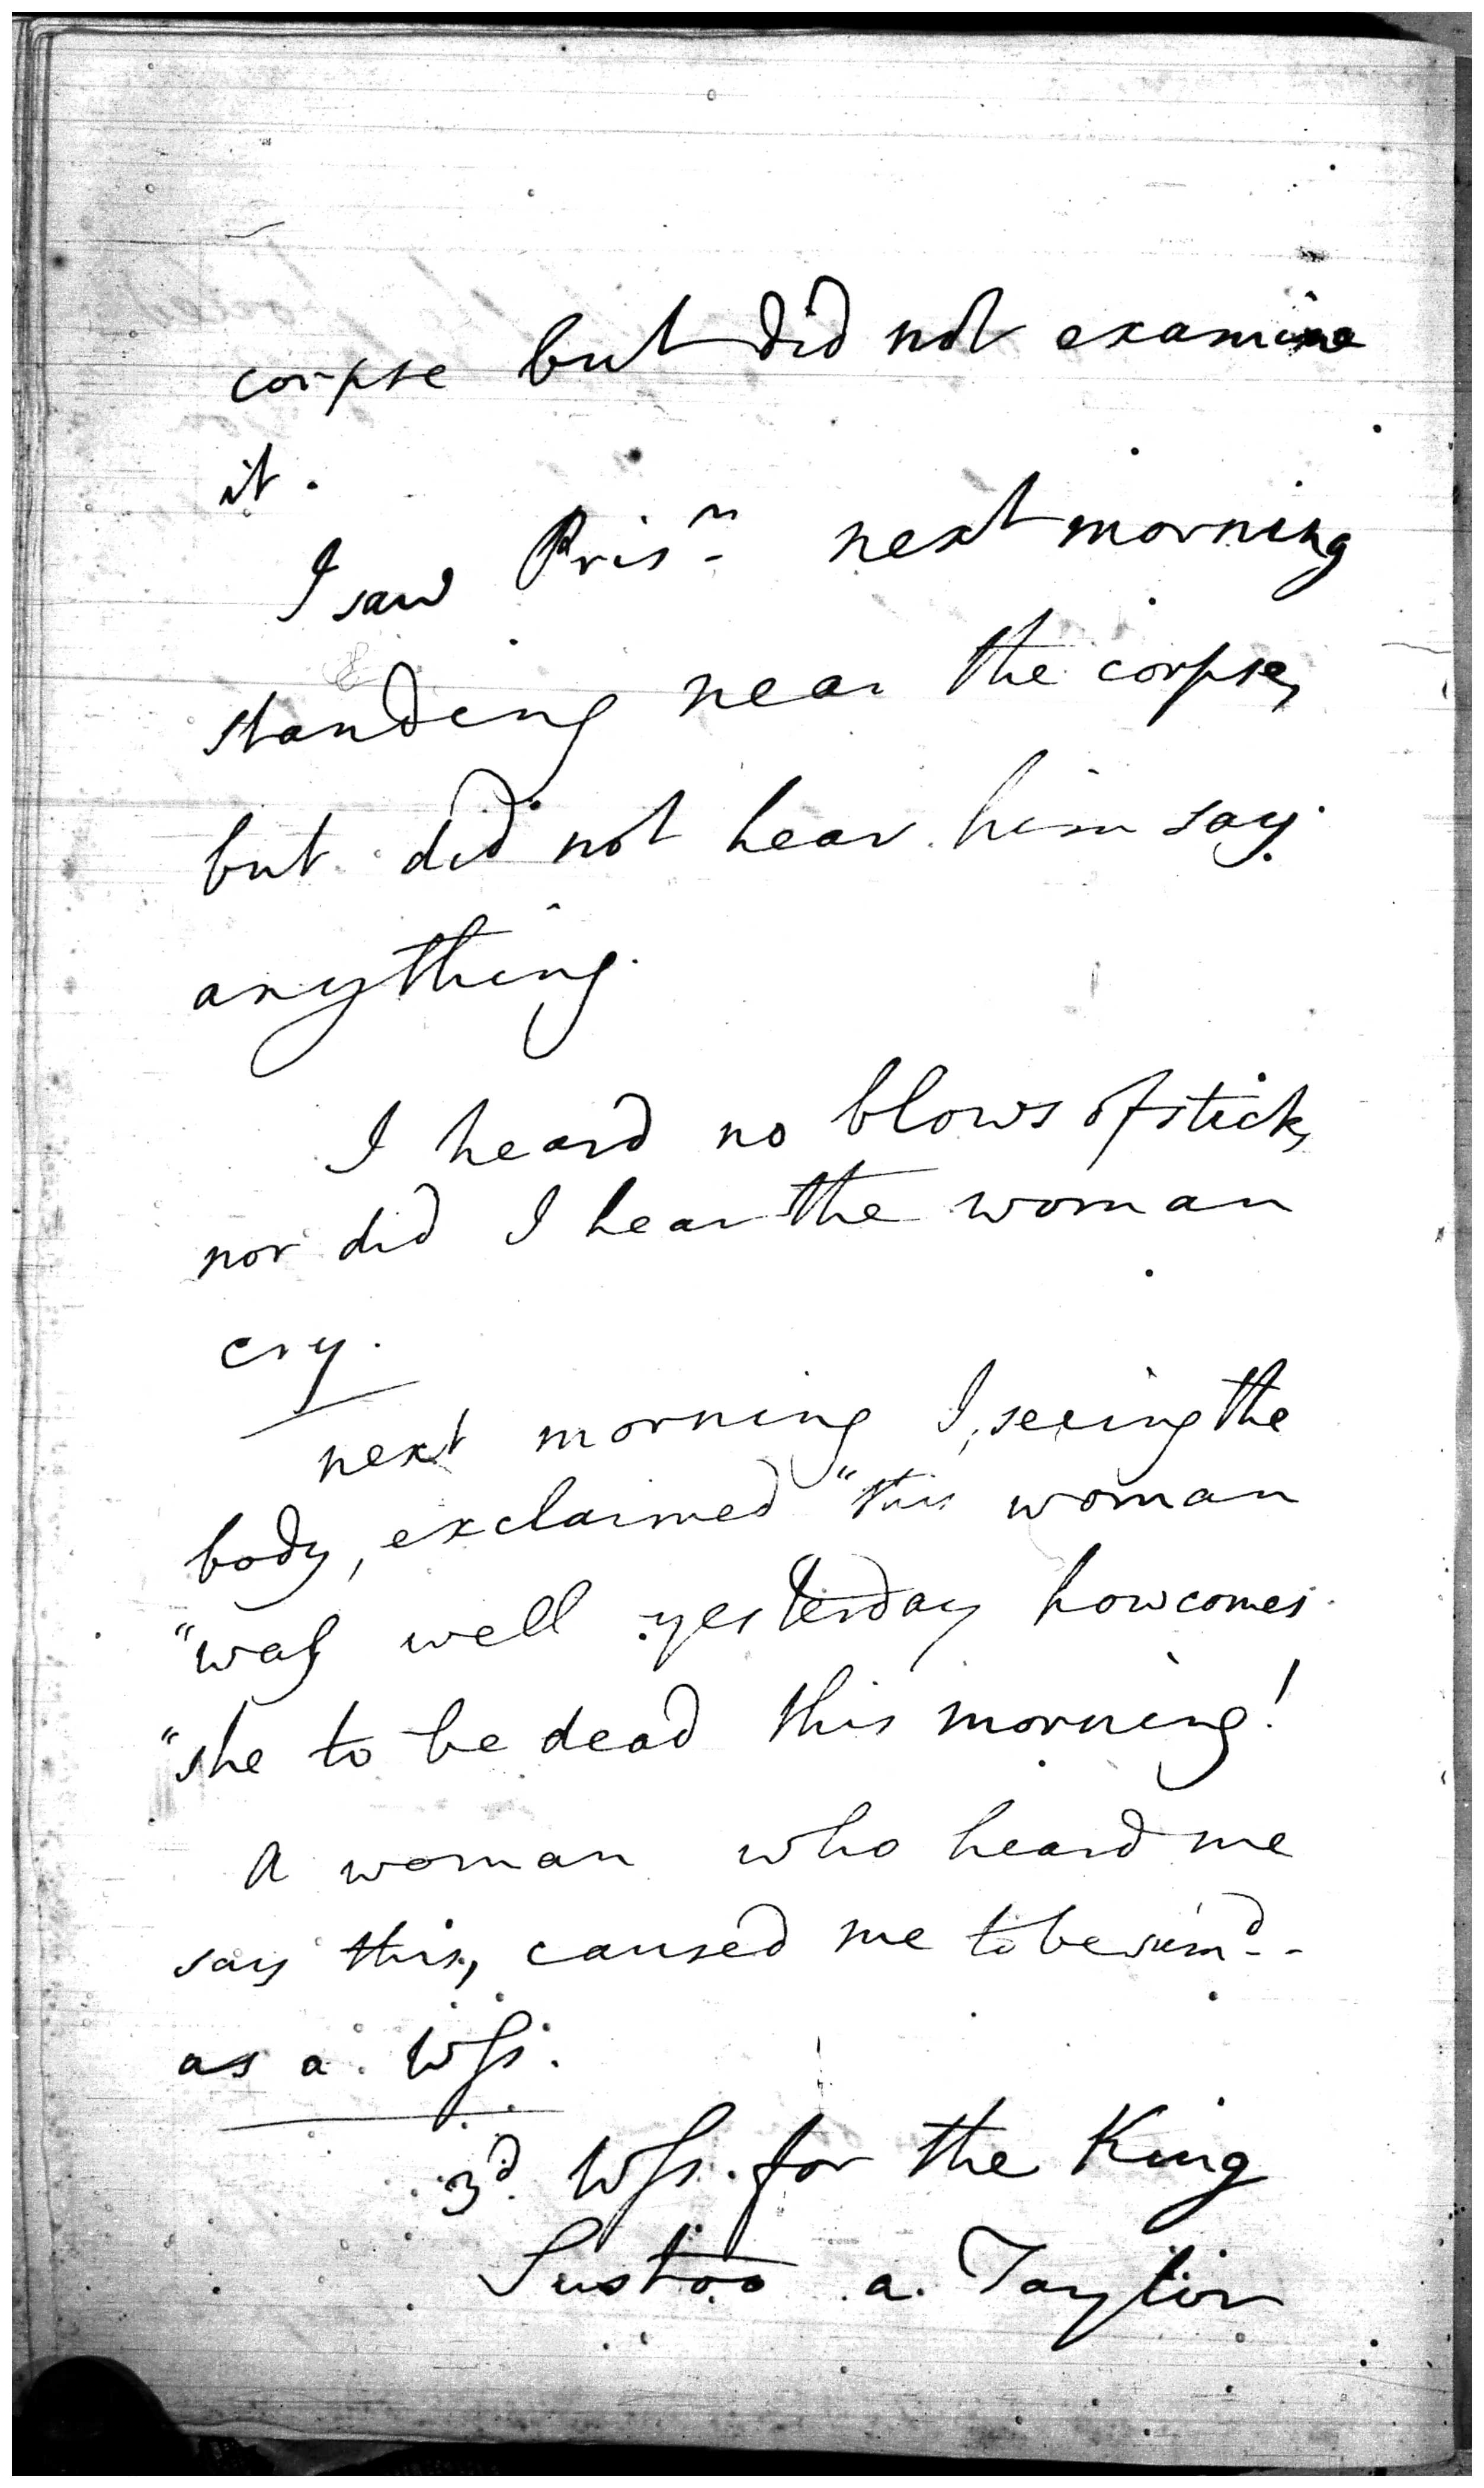 corpse but did not examine
it.
I saw Prisn next morning
standing near the corpse,
but did not hear him say
anything.
I heard no blows of stick,
nor did I hear the woman
cry.
next morning I, seeing the
body, exclaimed "this woman
"was well yesterday how comes
"she to be dead this morning!
A woman who heard me
say this, caused me to be sum'd
as a Wss.
3d. Wss. for the King
Sustoo a. Taylor